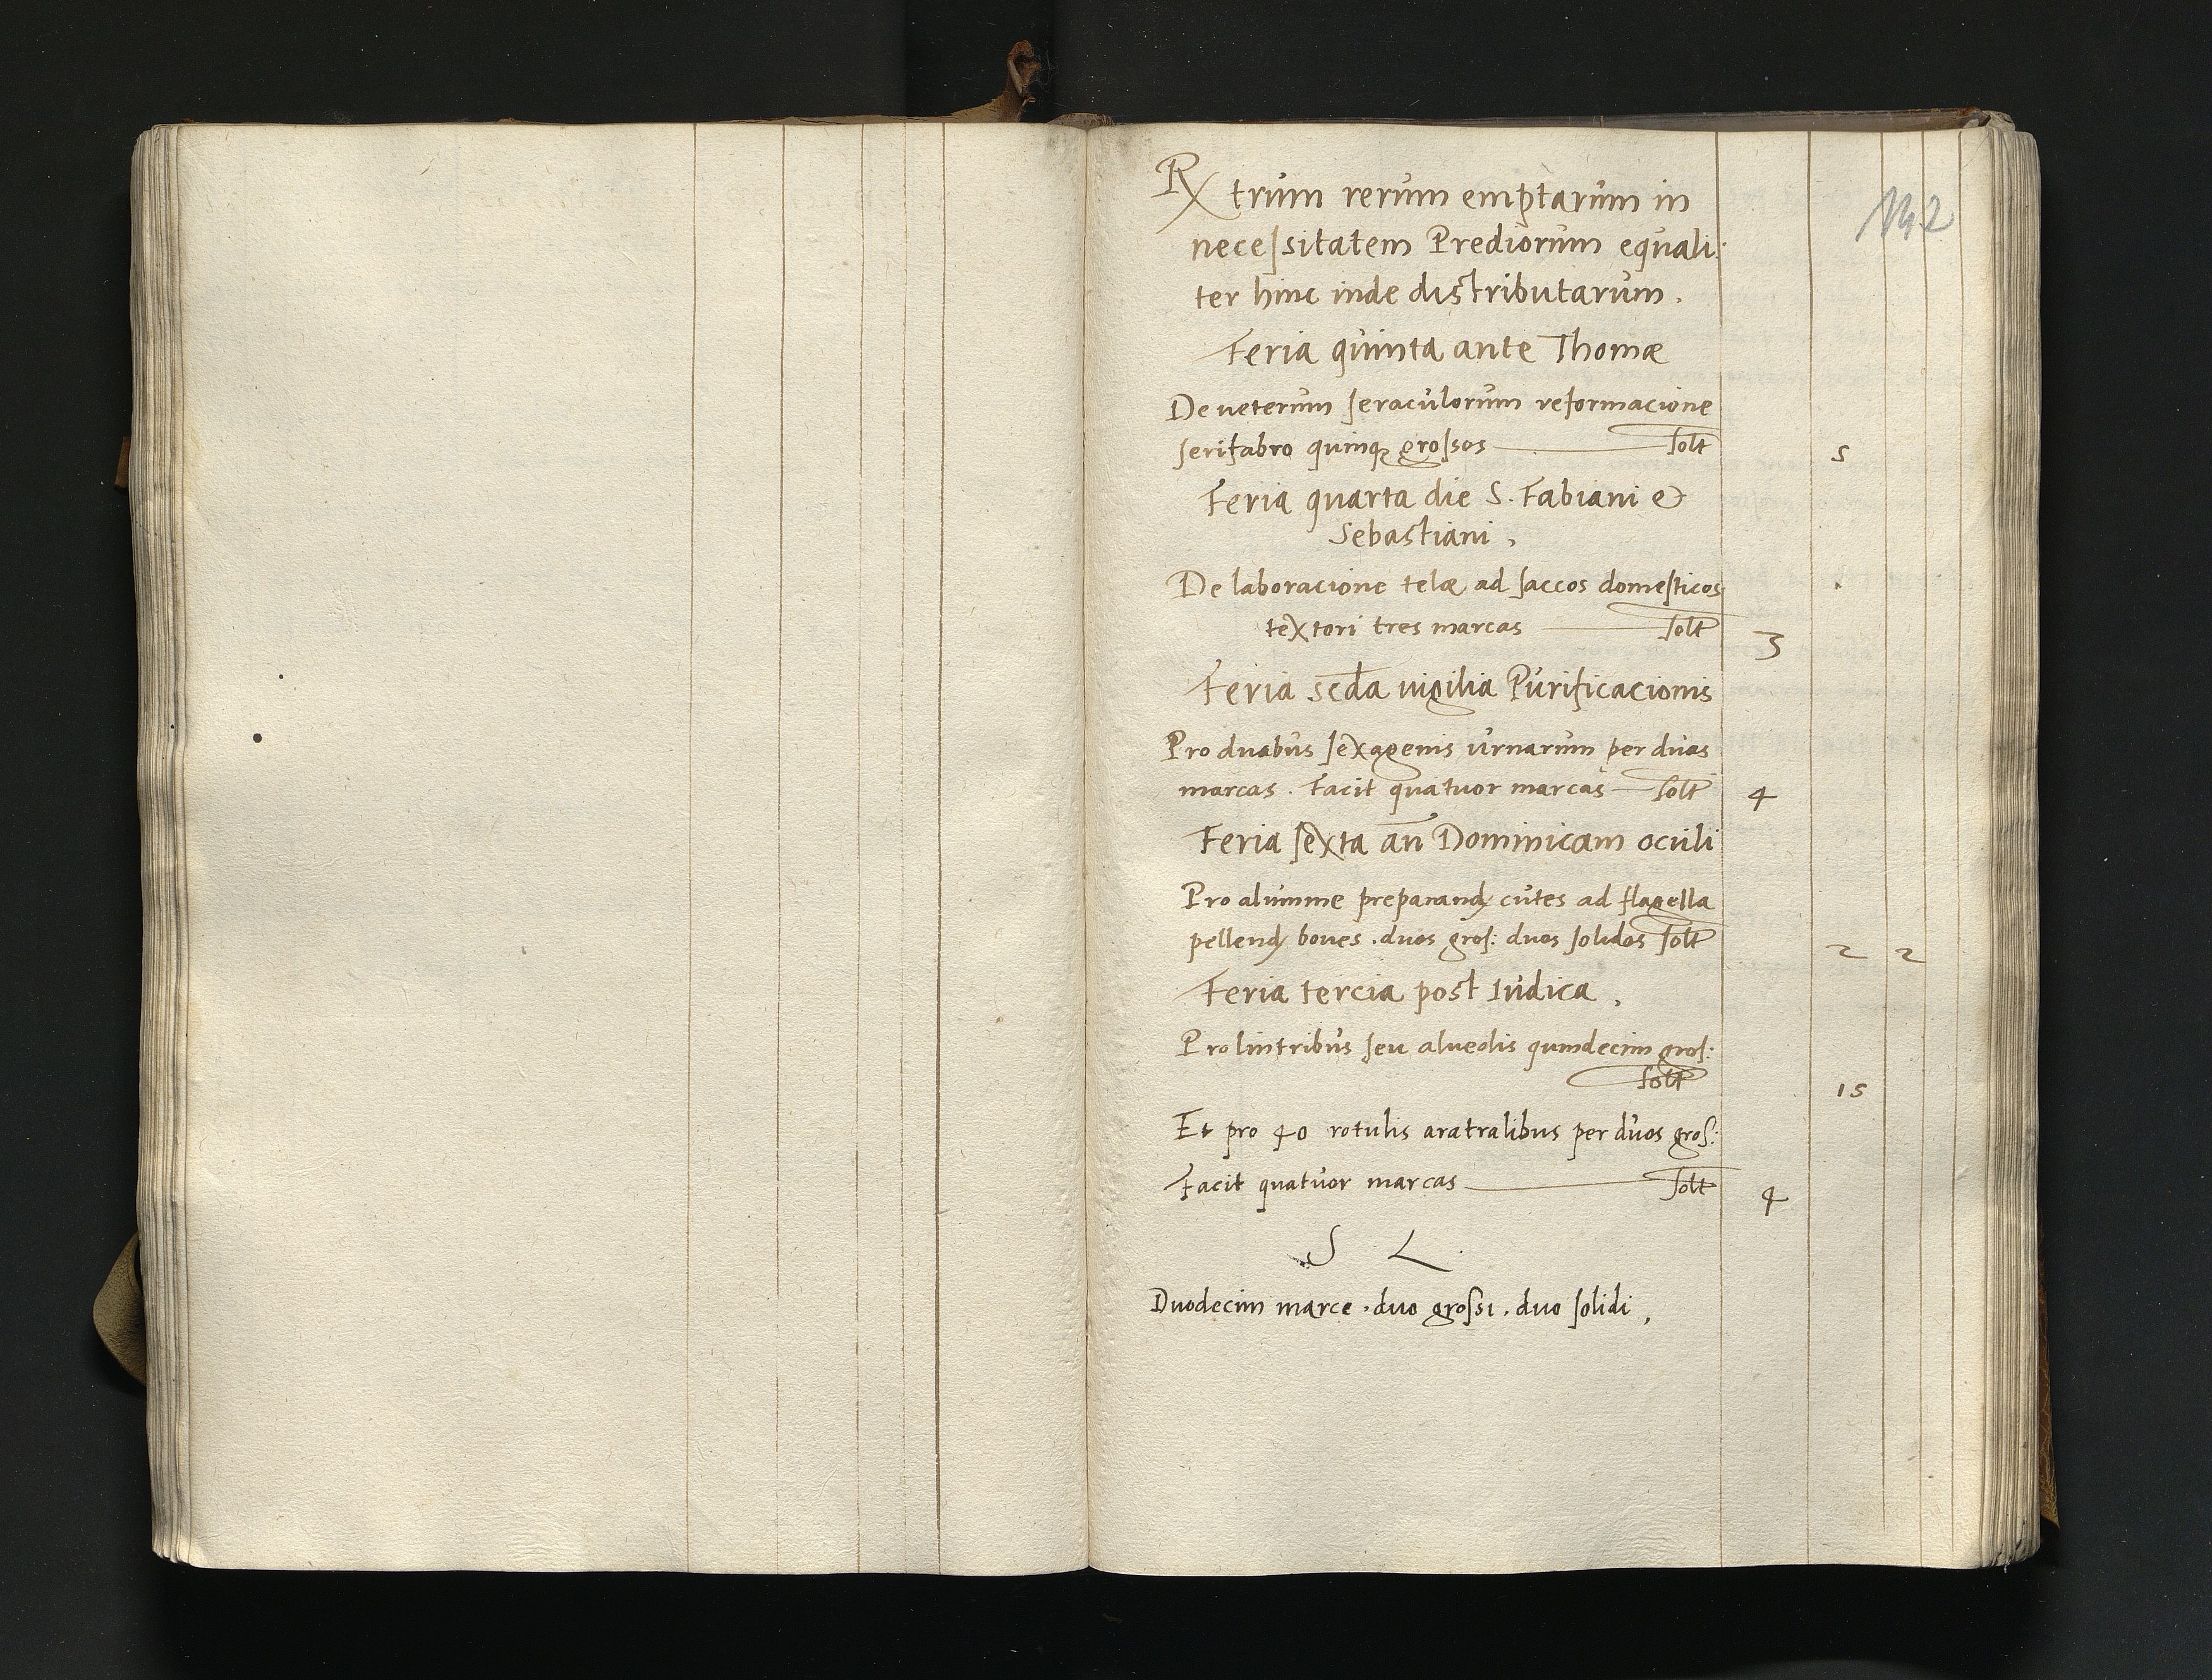 142
Rx trum rerum emptarum in
neceſsitatem Prediorum equali:
ter hinc inde distributarum.
Feria quinta ante Thomæ
De ueterum ſeraculorum reformacione
ſerifabro quinqꝫ groſsos — ſolt 5
Feria quarta die S. Fabiani et
Sebastiani,
De laboracione telæ ad ſaccos domeſticos
textori tres marcas — ſolt 3
Feria scda uigilia Purificacionis
Pro duabus ſexagenis urnarum per duas
marcas. Facit quatuor marcas — ſolt 4
Feria ſexta an̄ Dominicam oculi
Pro alumine preparandȩ cutes ad flagella
pellendȩ boues. duos groſ: duos ſolidos ſolt 2 2
Feria tercia post Iudica,
Pro lintribus ſeu alueolis quindecim groſ:
ſolt 15
Et pro 40 rotulis aratralibus per duos groſ:
Facit quatuor marcas — ſolt 4
S L
Duodecim marce. duo groſsi. duo ſolidi,